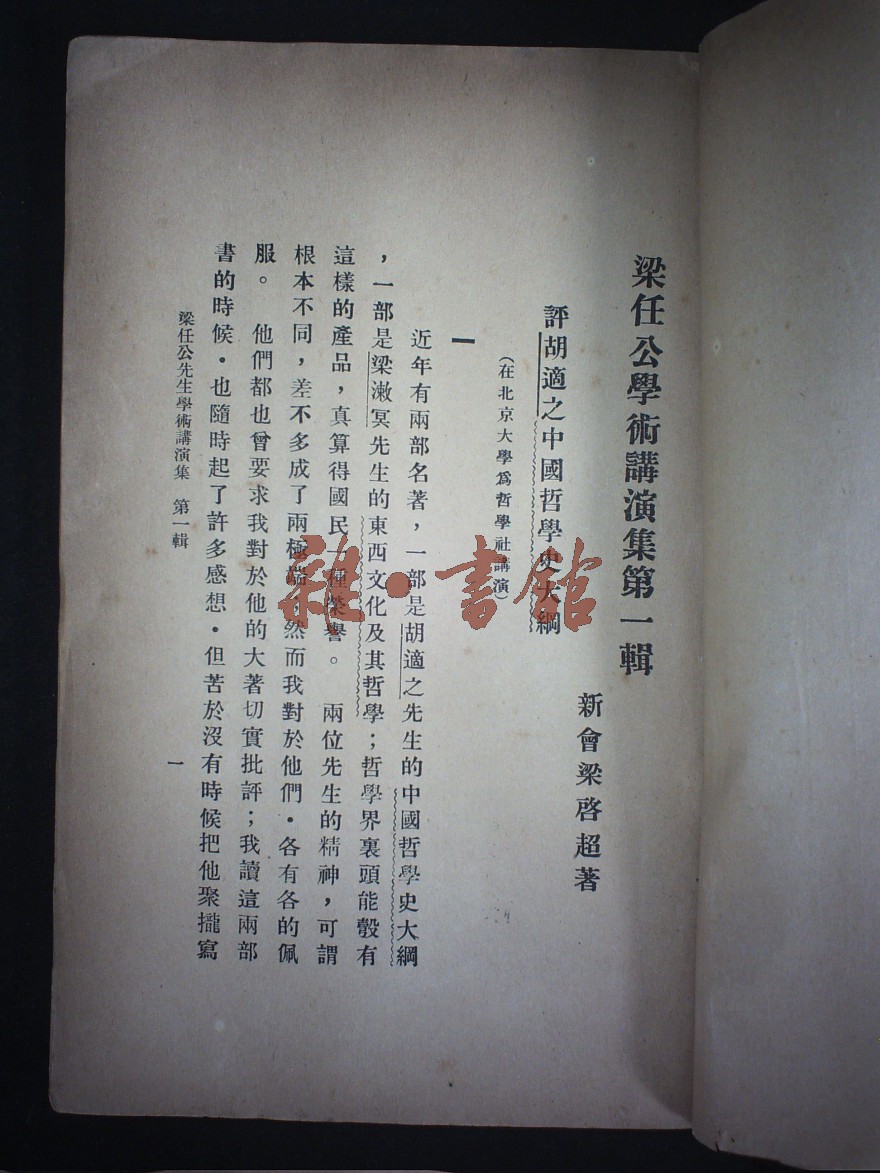 梁任公學術講演集第一輯
新會梁啓超著
評胡適之中國哲學史大綱
（在北京大學爲哲學社講演）
一
近年有兩部名著，一部是胡適之先生的中國哲學史大綱
，一部是梁漱冥先生的東西文化及其哲學；哲學界裏頭能彀有
這樣的產品，真算得國民一種榮譽。兩位先生的精神，可謂
根本不同，差不多成了兩極端，然而我對於他們・各有各的佩
服。他們都也曾要求我對於他的大著切實批評；我讀這兩部
書的時候・也隨時起了許多感想・但苦於沒有時候把他聚攏寫
梁任公先生學術講演集 第一輯
一
雜・書館